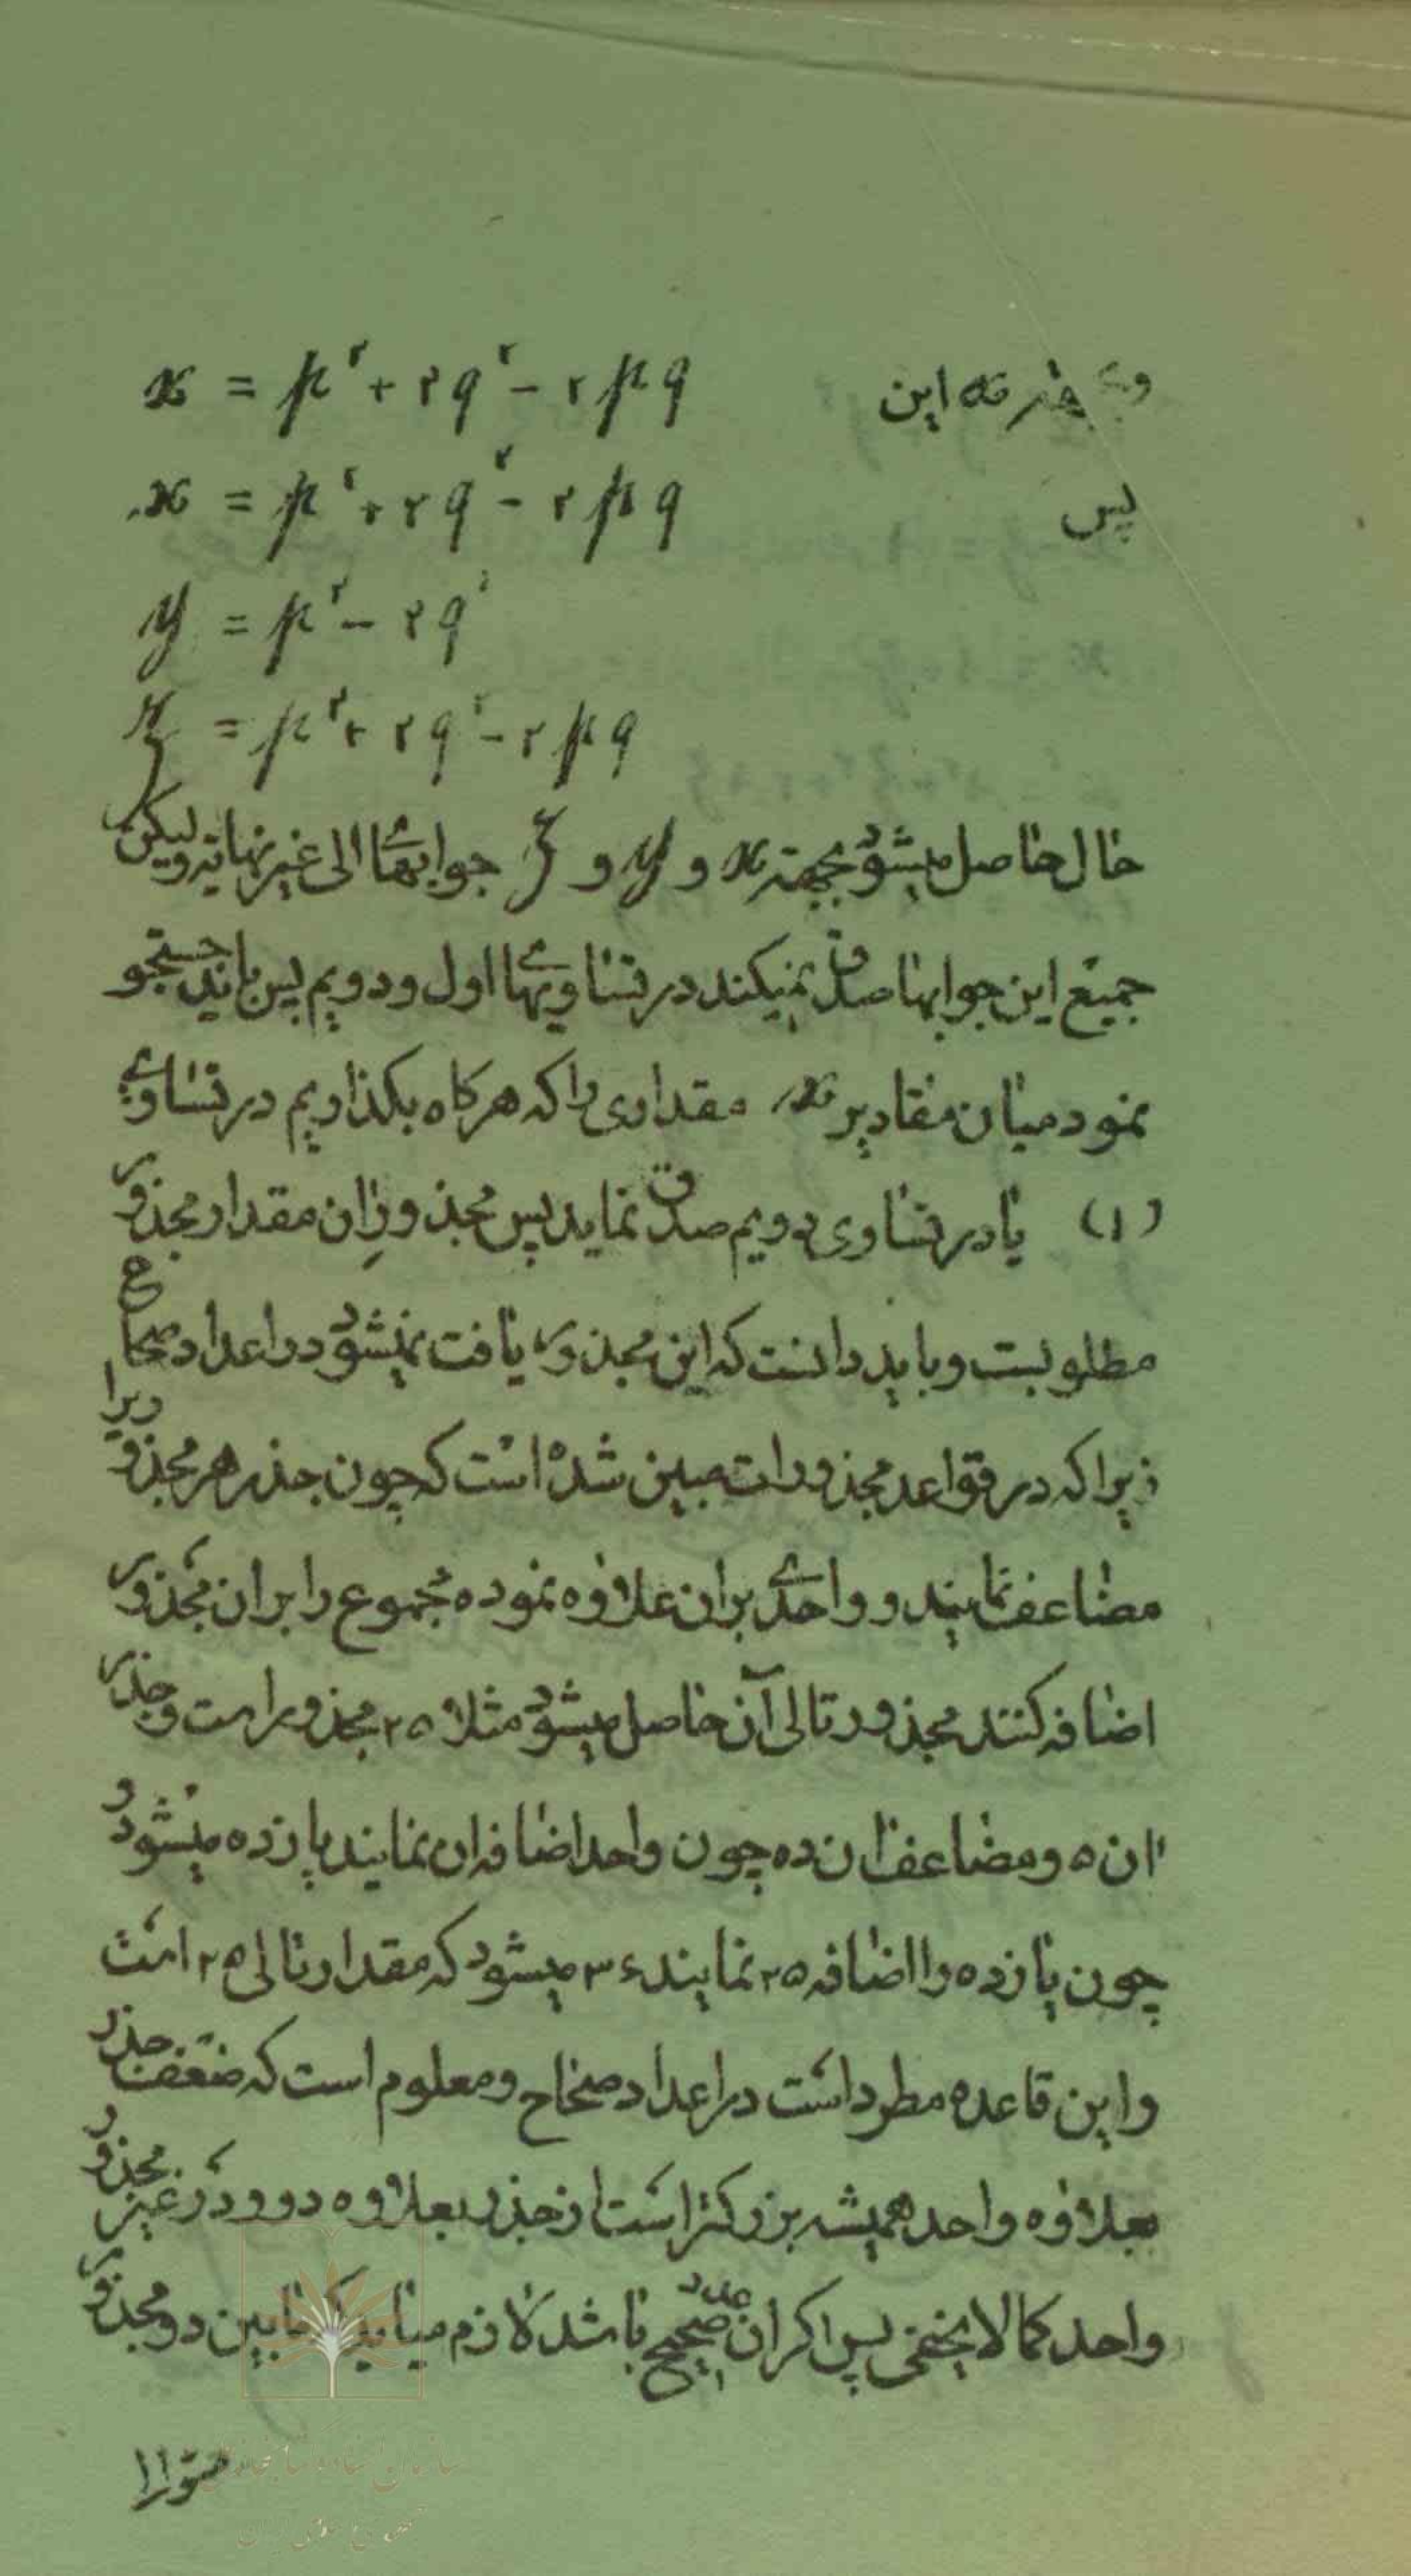 این x = p² + ۲q² - ۲pq
پس x = p² + ۲q² - ۲pq
y = p² - ۲q²
z = p² + ۲q² - ۲pq
حال حاصل میشود بجهة x و y و z جوابها الی غیر نهایه ولیکن
جمیع این جوابها صدق نمیکند در تساویهای اول و دویم پس باید جستجو
نمود میان مقادیر x مقداری را که هرکاه بکذاریم در تساوی
(۱) یا در تساوی دویم صدق نماید پس مجذور ان مقدار مجذور
مطلوبست و باید دانست که این مجذور یافت نمیشود در اعداد صحاح
زیرا که در قواعد مجذورات مبین شده است که چون جذر هر مجذور را
مضاعف نمایند و واحدی بران علاوه نموده مجموع را بران مجذور
اضافه کنند مجذور تالی آن حاصل میشود مثلا ۲۵ مجذور است و جذر
ان ۵ و مضاعف ان ده چون واحد اضافه ان نمایند یازده میشود و
چون یازده را اضافه ۲۵ نمایند ۳۶ میشود که مقدار تالی ۲۵ است
واین قاعده مطرد است در اعداد صحاح و معلوم است که ضعف جذر
بعلاوه واحد همیشه بزرکتر است از جذر بعلاوه دو و در غیر مجذور
واحد کما لا یخفی پس اکر ان عدد صحیح باشد لازم میاید که مابین دو مجذور
متوالا